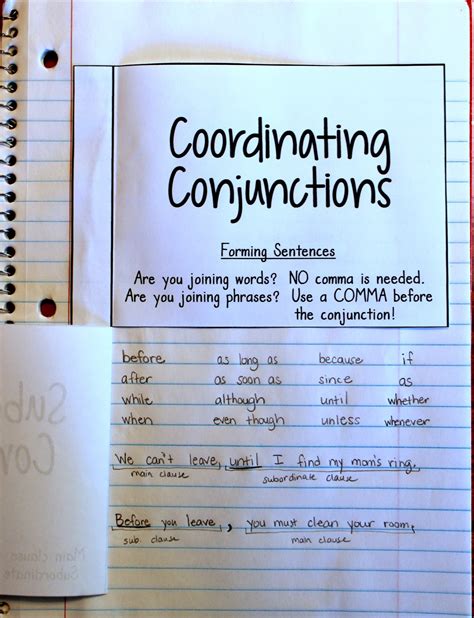 Coordinating
Conjunctions
Forming Sentences
Are you joining words? NO comma is needed.
Are you joining phrases? Use a COMMA before
the conjunction!
before as long as because if
after as soon as since as
while although until whether
when even though unless whenever
We can't leave, until I find my mom's ring.
main clause subordinate clause
Before you leave, you must clean your room.
sub. clause main clause
Sub
Co
Main clause
Subordinate